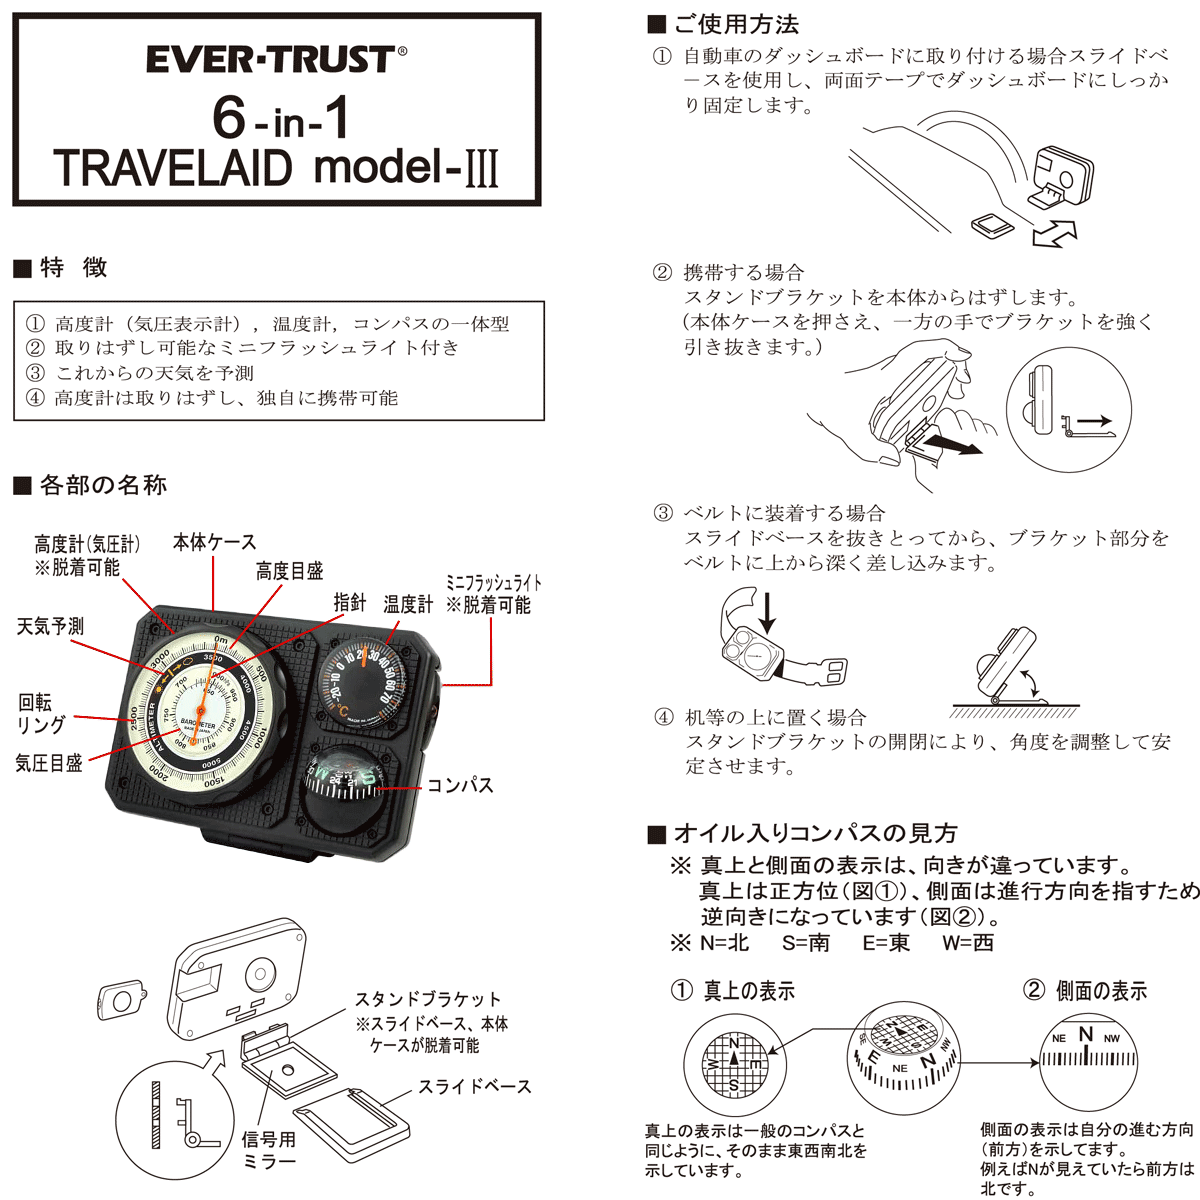 EVER-TRUST®
6-in-1
TRAVELAID model-III
■ 特 徴
① 高度計（気圧表示計）, 温度計, コンパスの一体型
② 取りはずし可能なミニフラッシュライト付き
③ これからの天気を予測
④ 高度計は取りはずし、独自に携帯可能
■ 各部の名称
高度計(気圧計)
※脱着可能
本体ケース
高度目盛
指針
温度計
ミニフラッシュライト
※脱着可能
天気予測
回転
リング
気圧目盛
コンパス
0m
500
1000
1500
2500
3000
3500
4000
4500
5000
ALTIMETER
BAROMETER
MADE IN JAPAN
700
750
800
850
900
950
-20 -10 0 10 20 30 40 50 60 70
°C
W
24
21
S
スタンドブラケット
※スライドベース、本体
ケースが脱着可能
スライドベース
信号用
ミラー
■ ご使用方法
① 自動車のダッシュボードに取り付ける場合スライドベ
ースを使用し、両面テープでダッシュボードにしっか
り固定します。
② 携帯する場合
スタンドブラケットを本体からはずします。
(本体ケースを押さえ、一方の手でブラケットを強く
引き抜きます。)
③ ベルトに装着する場合
スライドベースを抜きとってから、ブラケット部分を
ベルトに上から深く差し込みます。
④ 机等の上に置く場合
スタンドブラケットの開閉により、角度を調整して安
定させます。
■ オイル入りコンパスの見方
※ 真上と側面の表示は、向きが違っています。
真上は正方位(図①)、側面は進行方向を指すため
逆向きになっています(図②)。
※ N=北 S=南 E=東 W=西
① 真上の表示
② 側面の表示
N
W
E
S
N
E
W
S
SE
E
NE
N
NW
NE
N
NW
真上の表示は一般のコンパスと
同じように、そのまま東西南北を
示しています。
側面の表示は自分の進む方向
(前方)を示してます。
例えばNが見えていたら前方は
北です。